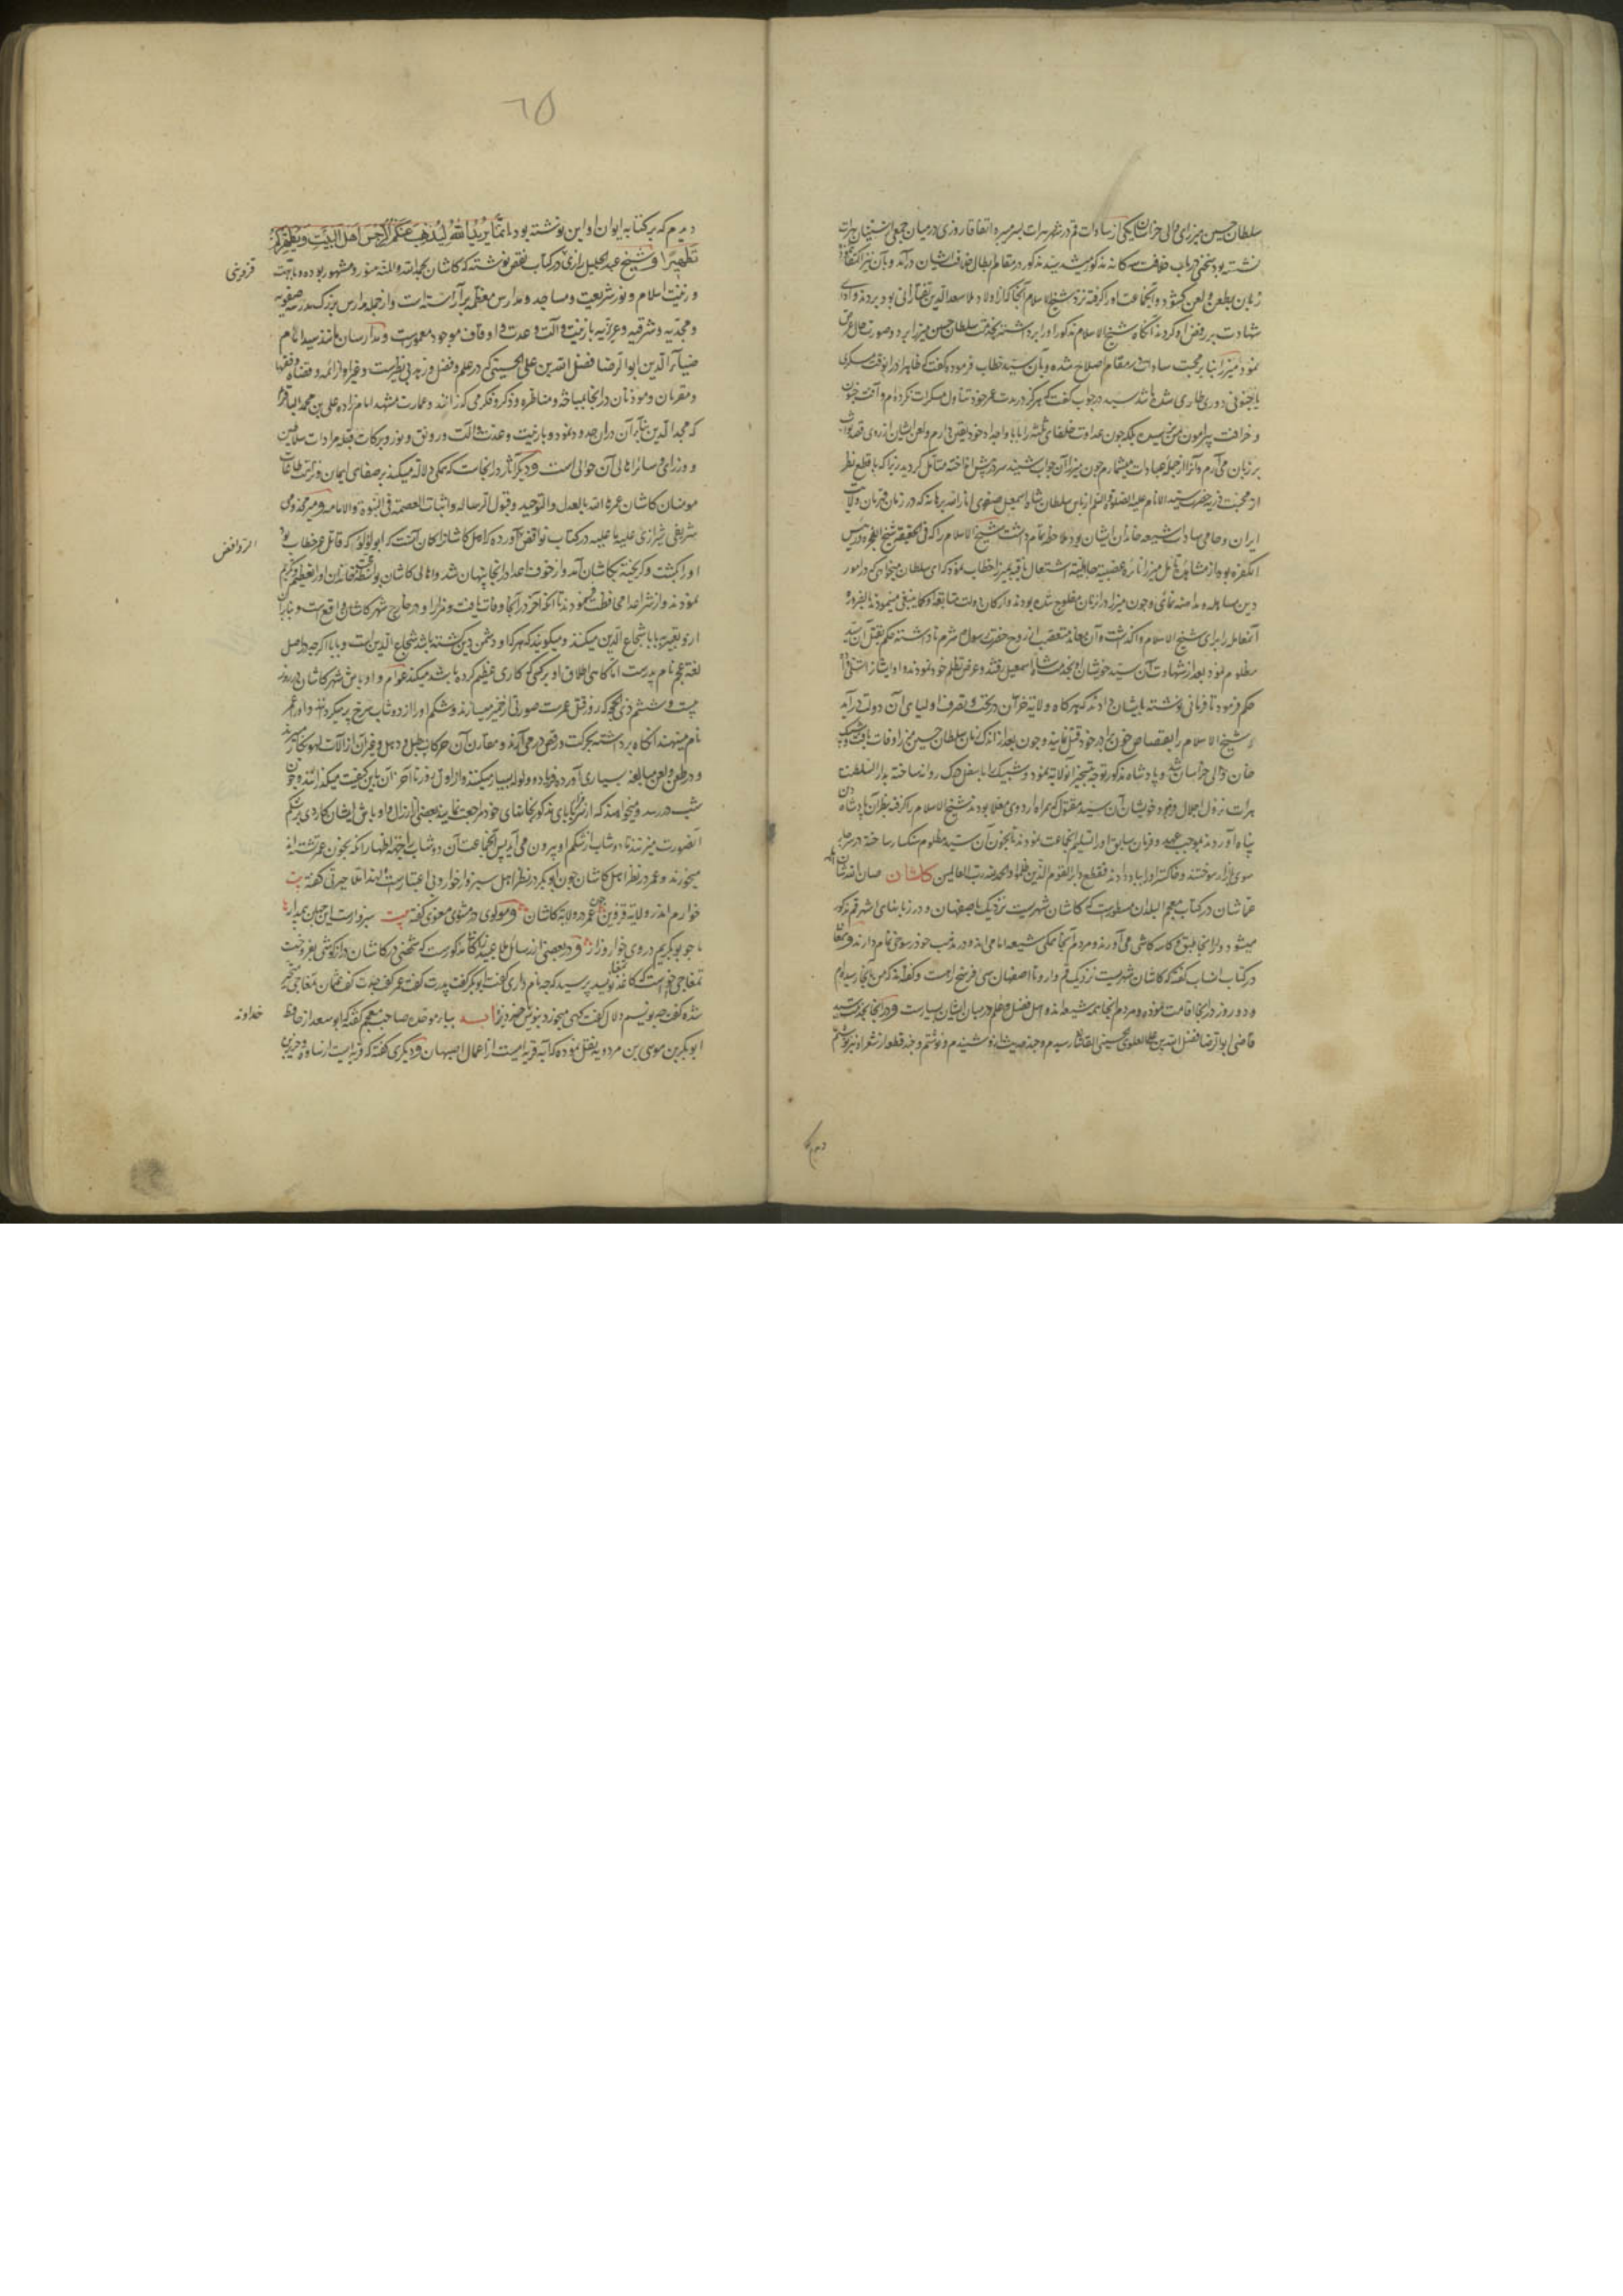 سلطان حسین میرزای والی خراسان یکی از سادات قم در شهر هرات بسر میبرد اتفاقا روزی در میان جمعی از سنیان هرات
نشسته بود سخنی در باب خلافت سه کانه مذکور میشد سید مذکور در مقام ابطال خلافت ایشان درآمد و بآن نیز اکتفا نکرده
زبان بطعن و لعن کشود و آنجماعت او را کرفته نزد شیخ الاسلام آنجا که از اولاد ملا سعد الدین تفتازانی بود بردند و ادای
شهادت بر رفض او کردند آنکاه شیخ الاسلام مذکور او را برداشته بخدمت سلطان حسین میرزا برد و صورت حال عرض
نمود میرزا بنا بر محبت سادات در مقام اصلاح شده و بآن سید خطاب فرمود و کفت که ظاهرا در آنوقت مسکری
یا جنونی دوری طاری شده باشد سید در جواب کفت که هرکز در مدت عمر خود تناول مسکرات نکرده‌ام و آفت جنون
و خرافت پیرامون من نرسیده بلکه چون عداوت خلفای ثلثه را بابا و اجداد خود یقین دارم و لعن ایشان از روی قصد و ثواب
بر زبان می‌آرم و آنرا از جمله عبادات میشمارم چون میرزا آن جواب شنید سر در پیش انداخته متأمل کردید زیرا که با قطع نظر
از محبت ذریه حضرت سید الانام علیه الصلوة والسلام از باس سلطان شاه اسمعیل صفوی انار الله برهانه که در زمان قهرمان ولایات
ایران و حامی سادات شیعه خاندان ایشان بود ملاحظه تمام داشت شیخ الاسلام را که فی الحقیقه شیخ الفجره و رئیس
الکفره بود از مشاهده تأمل میرزا نایره عصبیت جاهلیت اشتعال یافته بمیرزا خطاب نمود که ای سلطان میخواهی که در امور
دین مساهله و مداهنه نمائی و چون میرزا در آن زمان مفلوج شده بودند و ارکان دولت متابعت او کما ینبغی نمینمودند بالضروره
آنمعامله را برای شیخ الاسلام واکذاشت و آن معاند متعصب از روح حضرت رسول شرم نداشته حکم بقتل آن سید
مظلوم نمود بعد از شهادت آن سید خویشان او بخدمت شاه اسمعیل رفتند و عرض تظلم خود نمودند و او ایشانرا تسلی داد
حکم فرمود تا فرمانی نوشته بایشان دادند که هرکاه ولایة خراسان در تحت و تصرف اولیای آن دولت درآید
شیخ الاسلام را بقصاص خون برادر خود قتل نمایند و چون بعد از اندک زمان سلطان حسین میرزا وفات یافت و شیبک
خان والی خراسان شد و پادشاه مذکور توجه بتسخیر آنولایة نمود و شیبک را باسفل درک روانه ساخته بدار السلطنت
هرات نزول اجلال فرمود خویشان آن سید مقتول که همراه اردوی معلا بودند شیخ الاسلام را کرفته بنظر آن پادشاه دین
پناه آوردند بموجب عهد و فرمان سابق او را تسلیم آنجماعت نمودند تا بخون آن سید مظلوم سنکسار ساخته در سر چهار
سوی بازار سوختند و خاکستر او را بباد دادند فقطع دابر القوم الذین ظلموا والحمد لله رب العالمین کاشان صان الله شأن
عما شان در کتاب معجم البلدان مسطورست که کاشان شهریست نزدیک باصفهان و در زبانهای اشهر قم مذکور
میشود و از آنجا طبق و کاسه کاشی می‌آورند و مردم آنجا همکی شیعه امامی‌اند و در مذهب خود رسوخی تمام دارند و سمعانی
در کتاب انساب کفته که کاشان شهریست نزدیک قم و از و تا اصفهان سی فرسخ راهست و کفته‌اند که من بآنجا رسیده‌ام
و دو روز در آنجا اقامت نموده و مردم آنجا همه شیعه‌اند و اهل فضل و علم در میان ایشان بسیارست و در آنجا بخدمت سید
قاضی ابو الرضا فضل الله بن علی العلوی الحسینی القاشانی رسیدم و چند حدیث از او شنیدم و نوشتم و چند قطعه از شعر او نیز نوشتم
دیدم که
٦٥
دیدم که بر کتابه ایوان او این نوشته بود انما یرید الله لیذهب عنکم الرجس اهل البیت و یطهرکم
تطهیرا و شیخ عبد الجلیل رازی در کتاب نقض نوشته که کاشان بحمد الله والمنه منور و مشهور بوده
و زینت اسلام و نور شریعت و مساجد و مدارس معظم بر آراسته است و از جمله مدارس بزرک مدرسه صفویه
و مجدیه و شرقیه و عزیزیه با زینت و آلت و عدت و اوقاف موجود معمورست و مدرسان مانند سید امام
ضیاء الدین ابو الرضا فضل الله بن علی الحسینی که در علم و فضل و زهد بی نظیرست و غیر او از ائمه و قضاة و فقها
و مقریان و موذنان در آنجا بمباحثه و مناظره و ذکر و فکر می کذرانند و عمارت مشهد امام زاده علی بن محمد الباقر
که مجد الدین بنا بر آن در آن حدود نمود و با زینت و عدت و آلت و رونق و نور و برکات قبله مرادات سلاطین
و وزرای و سایر اهالی آن حوالی است و دیکر آثار در آنجاست که همکی دلالة میکند بر صفای ایمان و نزاهت طاعات
مومنان کاشان عمره الله بالعدل والتوحید و قبول الرساله و اثبات العصمة فی النبوة والامامه و میر مخدوم
شریفی شیرازی علیه ما علیه در کتاب نواقض آورده که اهل کاشانرا کمان آنست که ابو لؤلؤ که قاتل عمر خطاب بود
او را کشت و کریخته بکاشان آمد و از خوف اعدا در آنجا پنهان شد و اهالی کاشان بواسطه محبت خاندان او را تعظیم و تکریم
نمودند و از شر اعدا محافظت مینمودند تا آنکه آخر در آنجا وفات یافت و مزار او در خارج شهر کاشان واقع است و بنابر آن
از او تعبیر ببابا شجاع الدین میکنند و میکویند که هرکه او دشمن دین کشته باشد شجاع الدین است و بابا اکر چه در اصل
لغة عجم نام پدرست اما کاهی اطلاق او بر کسی که کاری عظیم کرده باشد میکنند عوام و اوباش شهر کاشان در روز
بیست و ششم ذی الحجه که روز قتل عمرست صورتی از خمیر میسازند و شکم او را از دوشاب سرخ پر میکردانند و او را عمر
نام مینهند آنکاه برداشته بحرکت و رقص درمی‌آرند و مقارن آن حرکات طبل و دهل و غیر آن از آلات لهو بکار میبرند
و در طعن و لعن مبالغه بسیاری آورده فریاد و ولوله بسیار میکنند و از اول روز تا آخر آن باین کیفیت میکذرانند و چون
شب در رسد و میخواهند که از مزار بابای مذکور بخانهای خود مراجعت نمایند بعضی از ارذال و اوباش ایشان کاردی بر شکم
آنصورت میزنند تا دوشاب از شکم او بیرون می‌آید پس آنجماعت آن دوشاب را بجهة اظهار آنکه بخون عمر تشنه‌اند
میخورند و عمر در نظر اهل کاشان چون ابوبکر در نظر اهل سبزوار خوار و بی اعتبارست لهذا ملا حیرتی کفته بیت
خوارم اندر ولایة قزوین چون عمر در ولایة کاشان و مولوی در مثنوی معنوی کفته بیت سبزوارست این جهان بیمدار
ما چو بوبکریم در وی خوار و زار و در بعضی از رسائل ملا عبید زاکانی مذکورست که شخصی در کاشان دراز کوشی بفروخت
تمغاجی خواست که کاغذ تمغا نوید پرسید که چه نام داری کفت ابوبکر کفت پدرت کفت عمر کفت جدت کفت عثمان تمغاجی متحیر
شده کفت چه نویسم دلال کفت کهی میخورد بنویس خداوند خر آبه بباء موحده صاحب معجم کفته که ابو سعد از حافظ
ابوبکر بن موسی بن مردویه نقل نموده که آبه قریه ایست از اعمال اصبهان و دیکری کفته که قریه ایست از ساوه و جریر بن
قزوینی
الروافض
خداوند